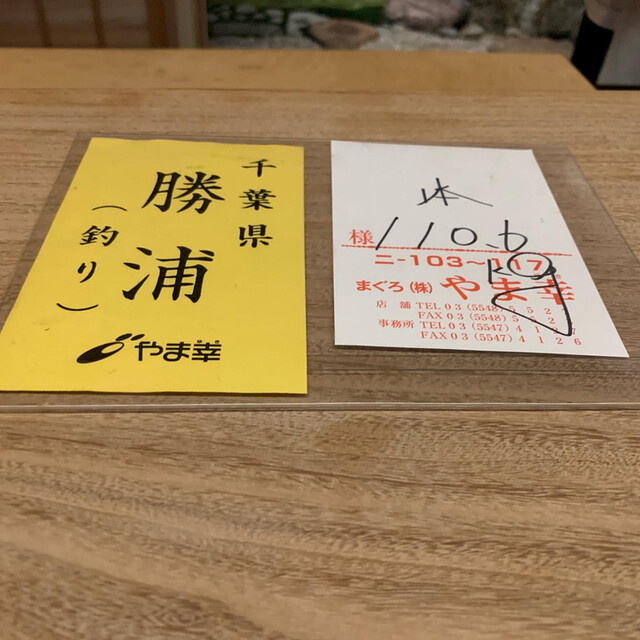 千葉県
勝浦
(釣り)
やま幸
本
様 110.6
ニ-103~117
まぐろ(株)やま幸
店舗 TEL 03 (5548) 5 2
FAX 03 (5548) 5 2 7
事務所 TEL 03 (5547) 4 1
FAX 03 (5547) 4 1 2 6